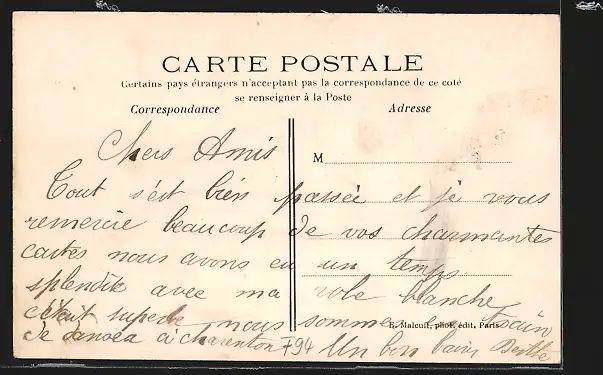 CARTE POSTALE
Certains pays étrangers n'acceptant pas la correspondance de ce coté
se renseigner à la Poste
Correspondance Adresse
Chers Amis
M
Tout s'est bien passée et je vous
remercie beaucoup de vos charmantes
cartes nous avons eu un temps
splendide avec ma robe blanche
c'était superbe nous sommes en train
E. Malcuit, phot. édit, Paris
de danser à charenton
Un bon baiser Berthe